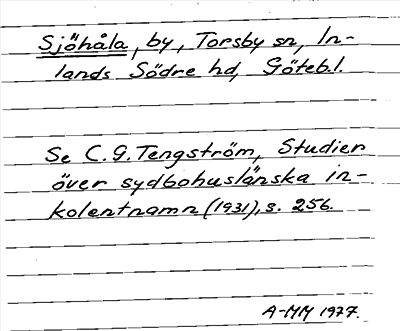 Sjöhåla, by, Torsby sn, In-
lands Södre hd, Göteb.l.
Se C.G. Tengström, Studier
över sydbohuslänska in-
kolentnamn (1931), s. 256.
A-MM 1977.